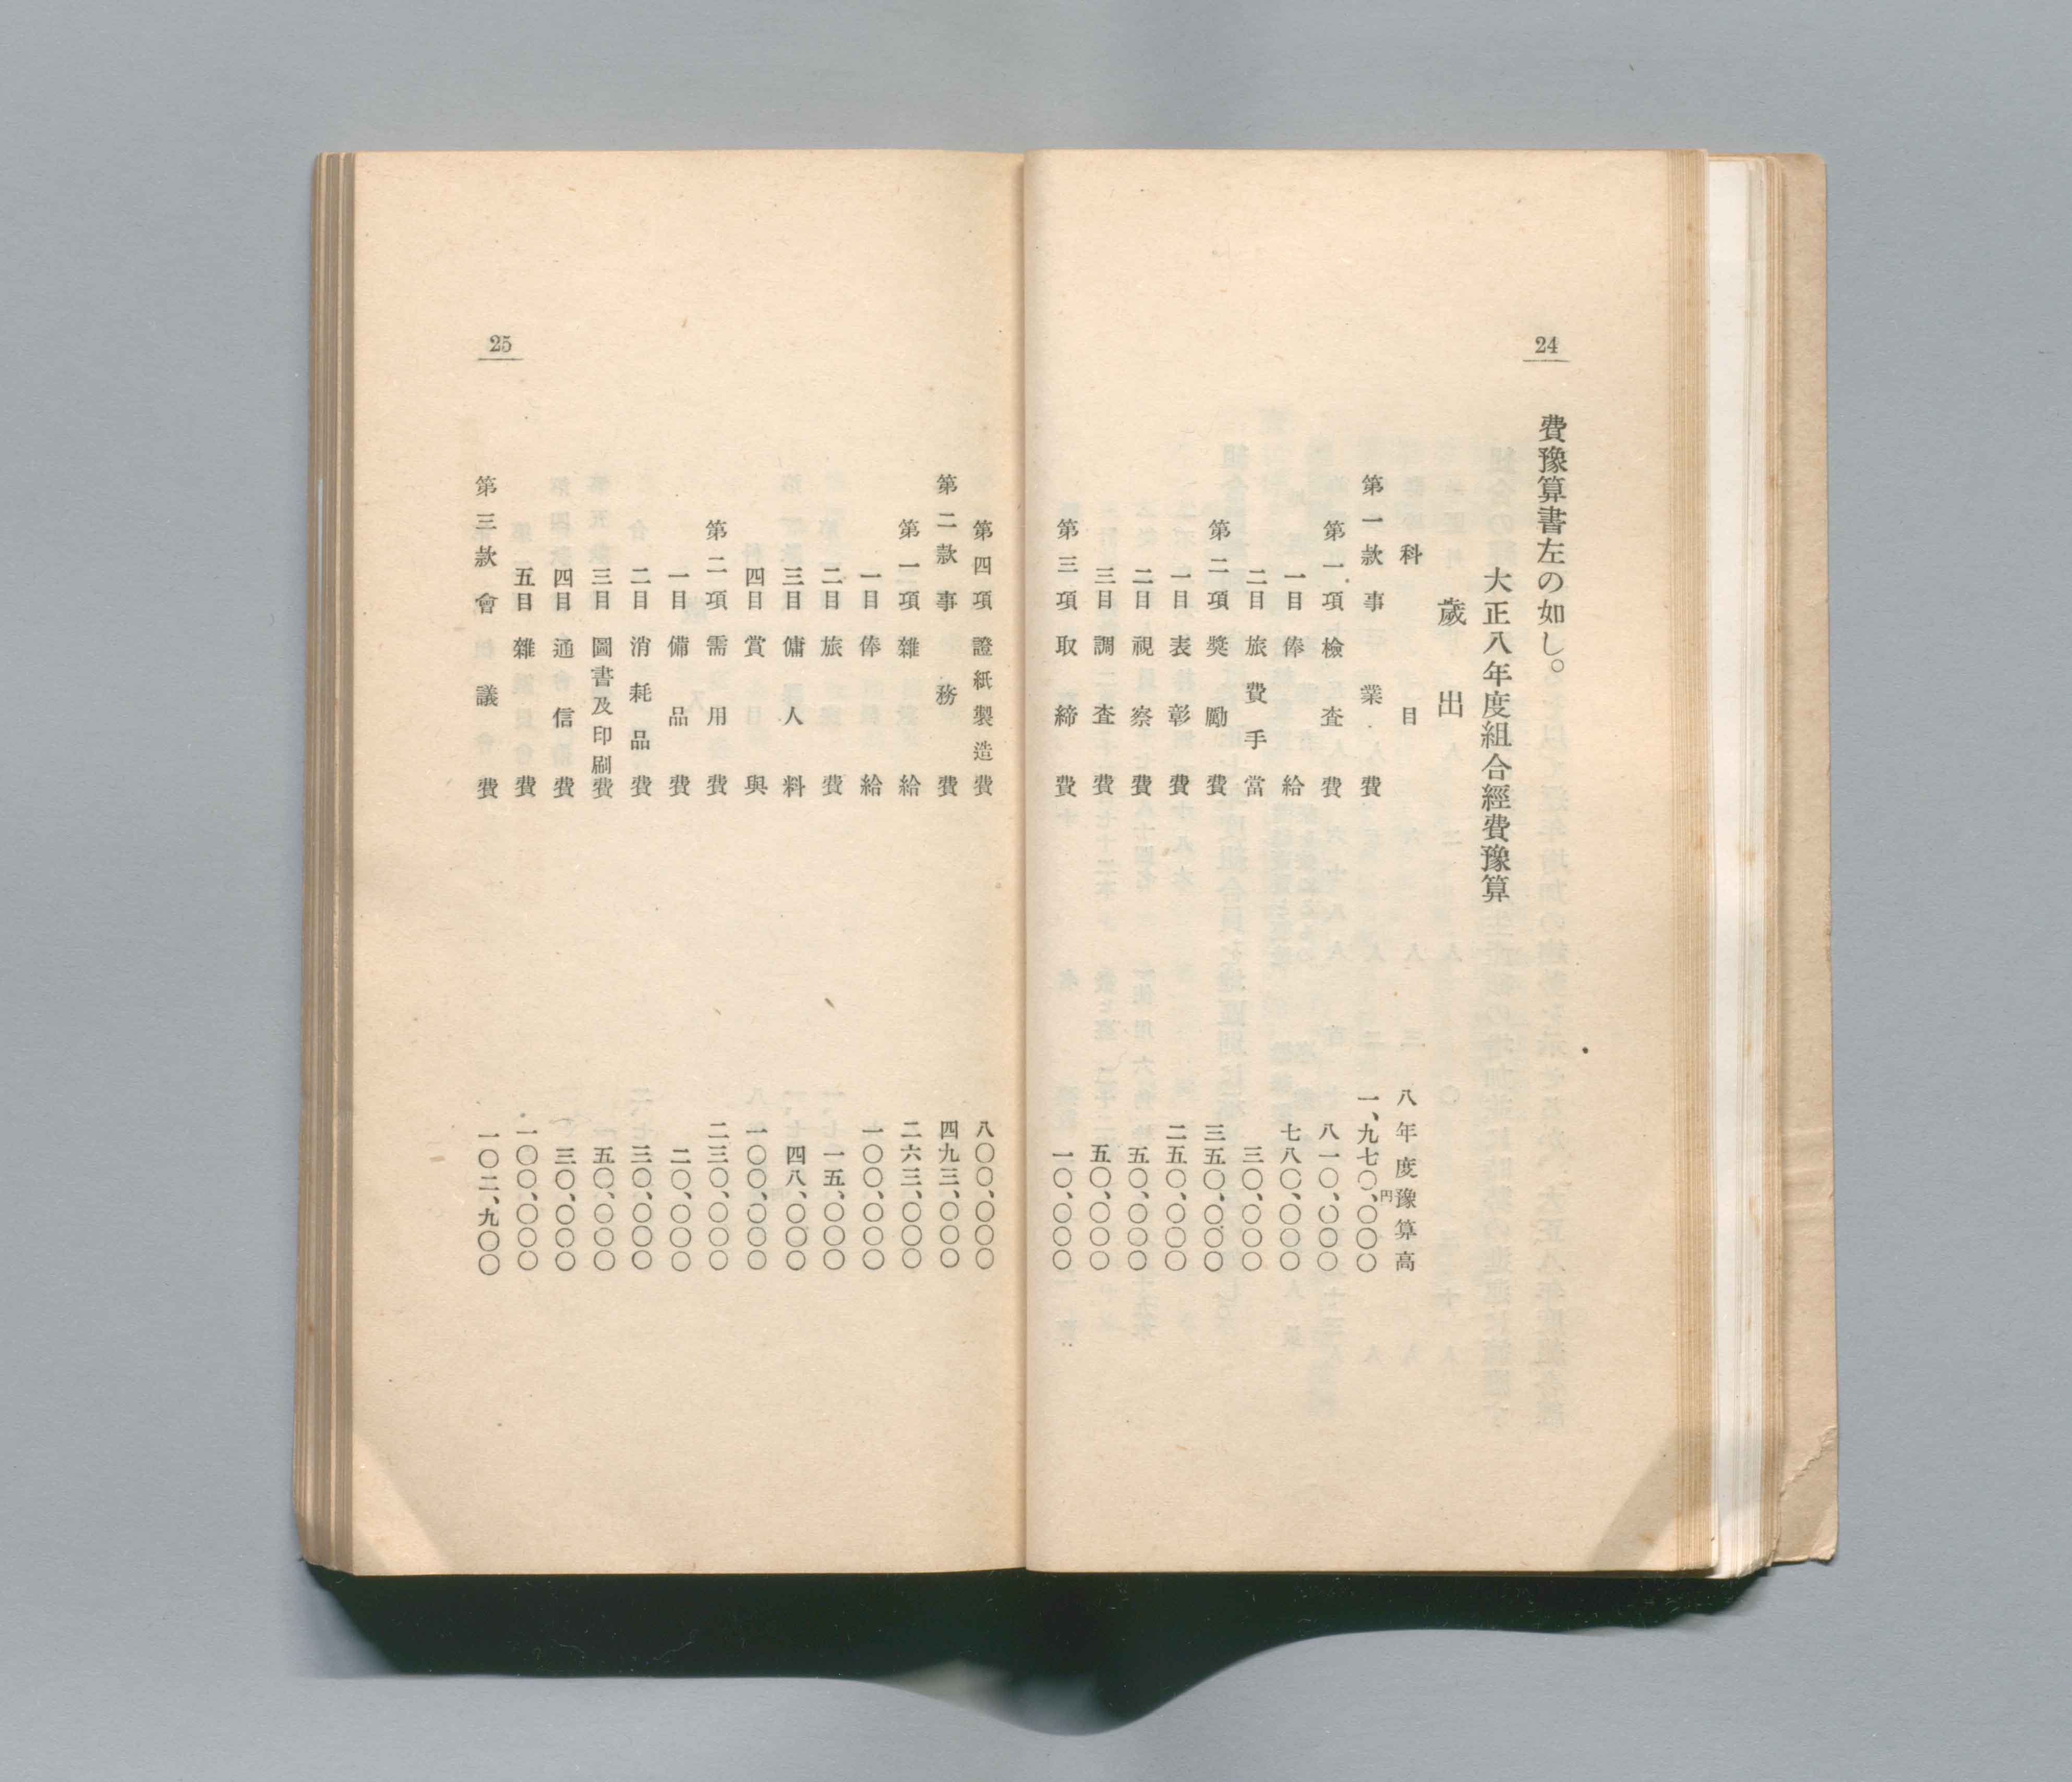 24
費豫算書左の如し。
大正八年度組合經費豫算
歲出
科目 八年度豫算高
第一款事業費 一、九七〇、〇〇〇円
第一項檢査費 八一〇、〇〇〇
一目俸給 七八〇、〇〇〇
二目旅費手當 三〇、〇〇〇
第二項奬勵費 三五〇、〇〇〇
一目表彰費 二五〇、〇〇〇
二目視察費 五〇、〇〇〇
三目調査費 五〇、〇〇〇
第三項取締費 一〇、〇〇〇
第四項證紙製造費 八〇〇、〇〇〇
第二款事務費 四九三、〇〇〇
第一項雜給 二六三、〇〇〇
一目俸給 一〇〇、〇〇〇
二目旅費 一五、〇〇〇
三目傭人料 四八、〇〇〇
四目賞與 一〇〇、〇〇〇
第二項需用費 二三〇、〇〇〇
一目備品費 二〇、〇〇〇
二目消耗品費 三〇、〇〇〇
三目圖書及印刷費 五〇、〇〇〇
四目通信費 三〇、〇〇〇
五目雜費 一〇〇、〇〇〇
第三款會議費 一〇二、九〇〇
25